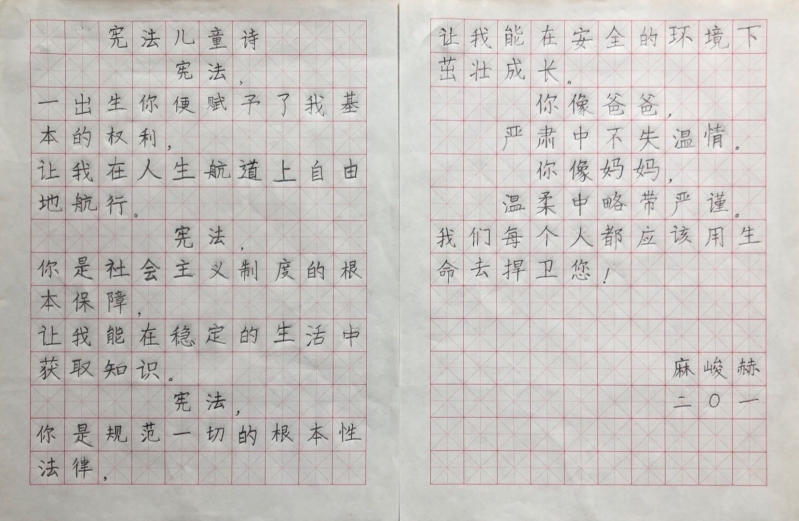 宪法儿童诗
宪法，
一出生你便赋予了我基
本的权利，
让我在人生航道上自由
地航行。
宪法，
你是社会主义制度的根
本保障，
让我能在稳定的生活中
获取知识。
宪法，
你是规范一切的根本性
法律，
让我能在安全的环境下
茁壮成长。
你像爸爸，
严肃中不失温情。
你像妈妈，
温柔中略带严谨。
我们每个人都应该用生
命去捍卫您！
麻峻赫
二〇一